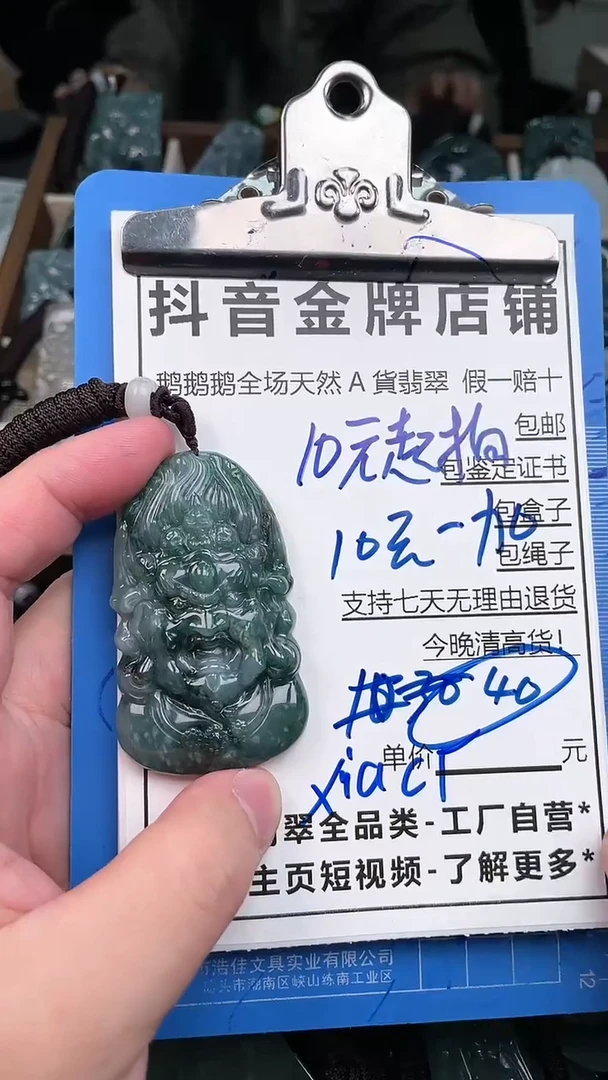 抖音金牌店铺
鹅鹅鹅全场天然A貨翡翠 假一赔十
包邮
10元起拍
包鉴定证书
包盒子
10元一加
包绳子
支持七天无理由退货
今晚清高货!
40
单价 元
翠全品类-工厂自营*
主页短视频-了解更多*
浩佳文具实业有限公司
头市潮南区峡山练南工业区
12